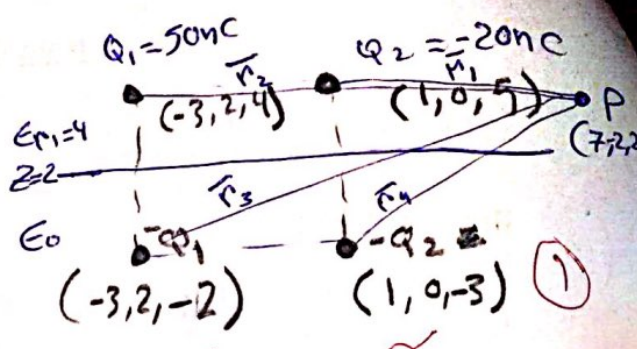 Q₁=50nC Q₂=-20nC
r̄₂ r̄₁
(-3,2,4) (1,0,5) P
εr₁=4 (7,-2,2
Z=2
r̄₃ r̄₄
ε₀ -Q₁ -Q₂
(-3,2,-2) (1,0,-3) 1